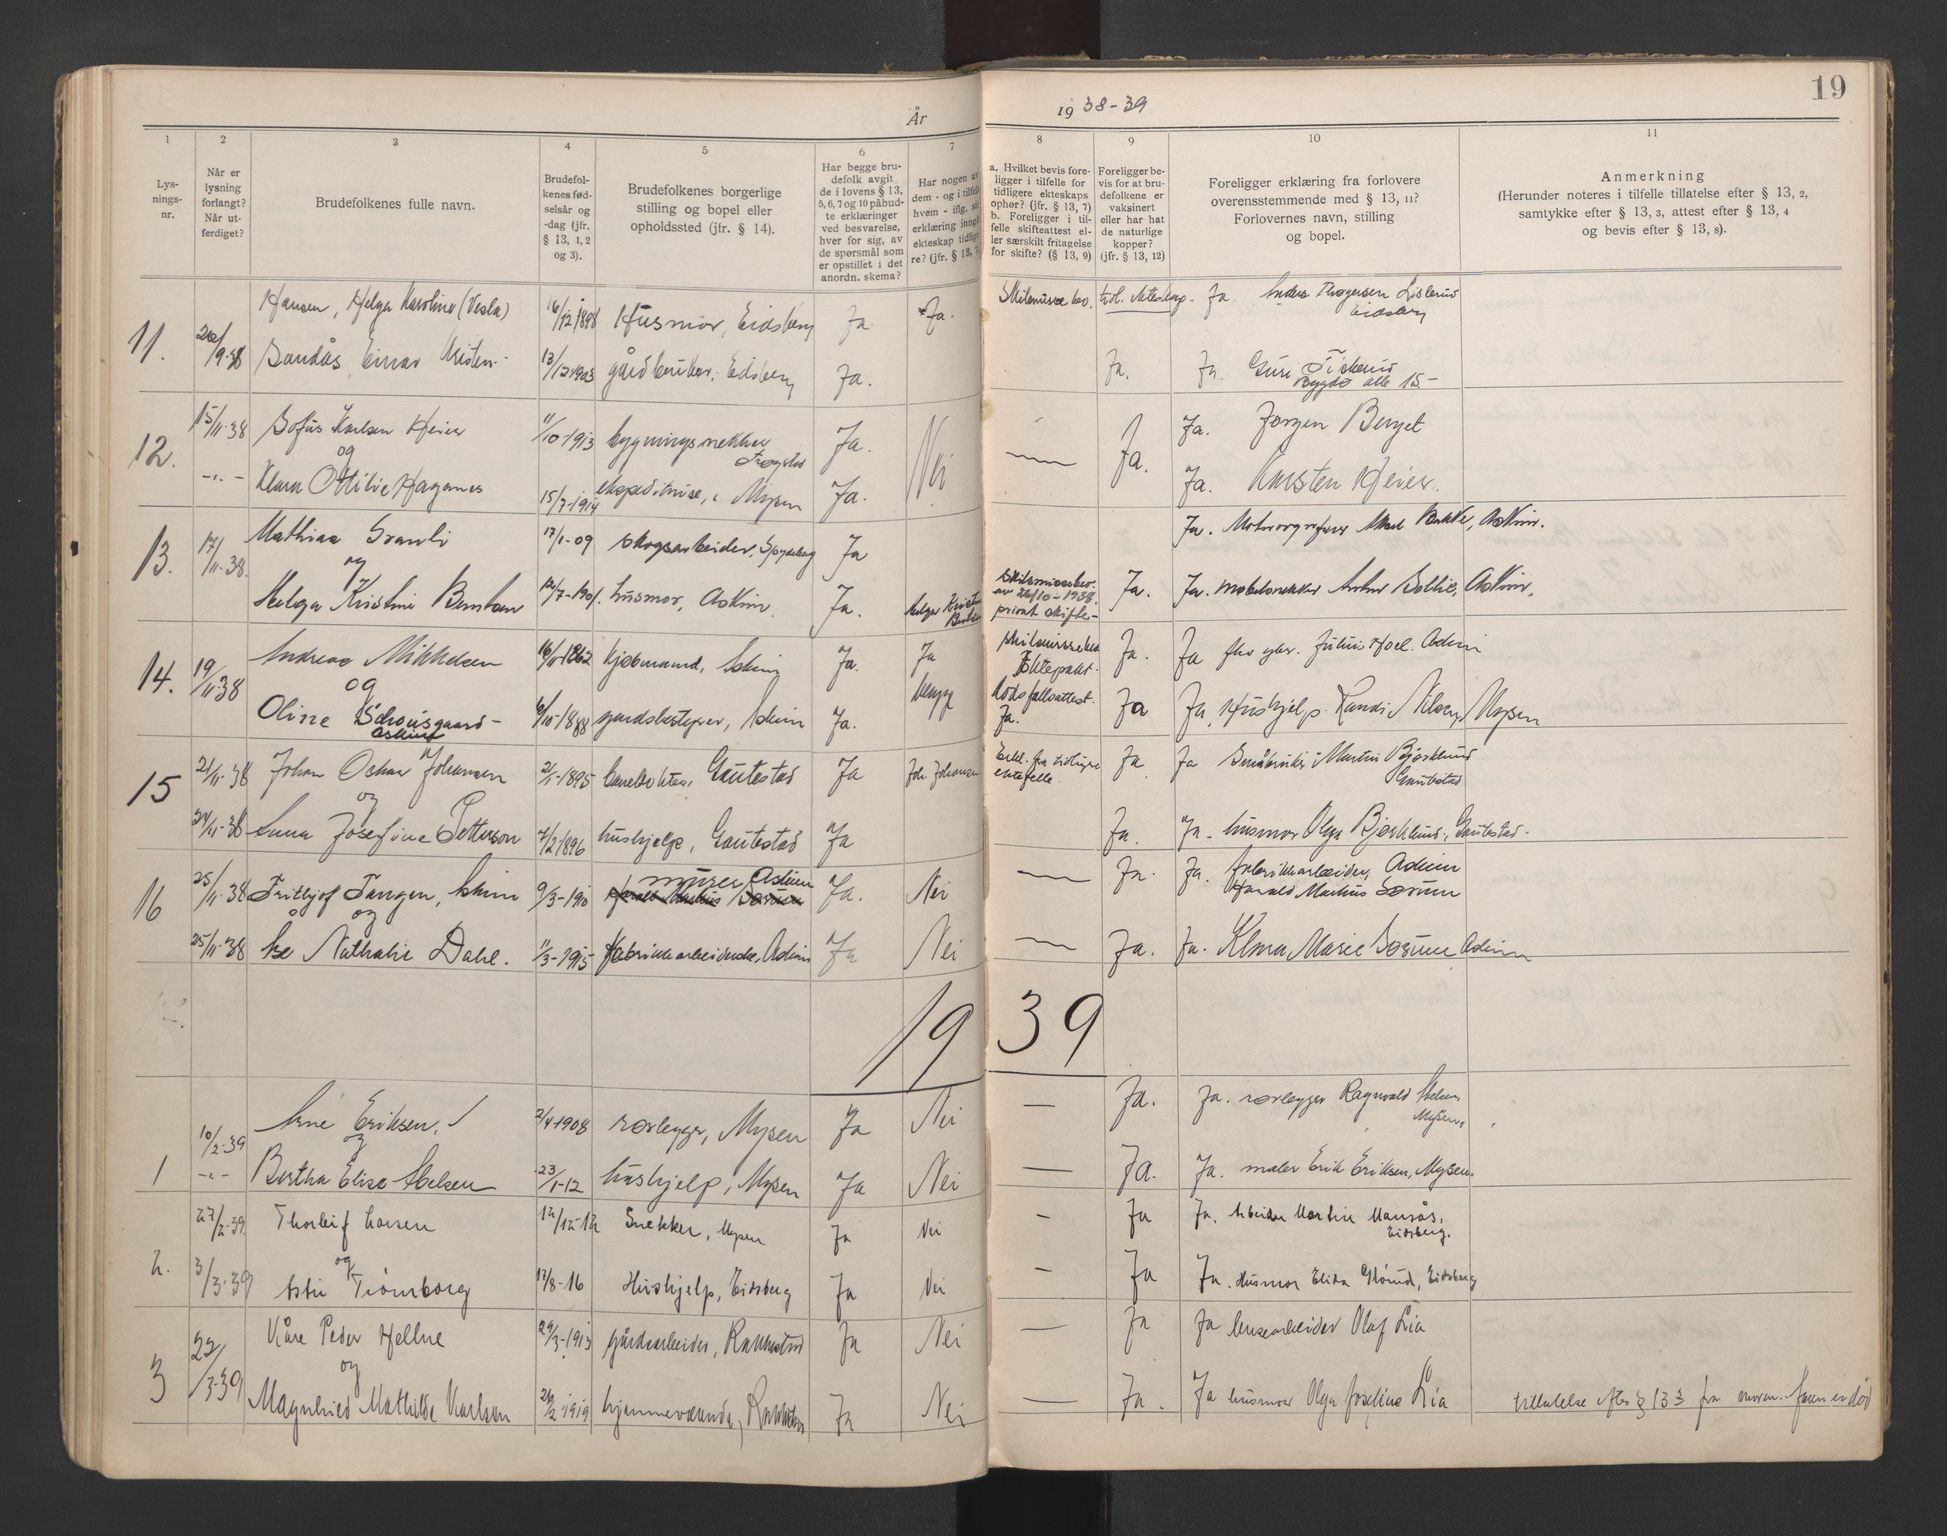 År
19 38-39
19
1
2
3
4
5
6
7
8
9
10
11
Lys-
nings-
nr.
Når er
lysning
forlangt?
Når ut-
ferdiget?
Brudefolkenes fulle navn.
Brudefol-
kenes fød-
selsår og
-dag (jfr.
§ 13, 1, 2
og 3).
Brudefolkenes borgerlige
stilling og bopel eller
opholdssted (jfr. § 14).
Har begge bru-
defolk avgit
de i lovens § 13,
5, 6, 7 og 10 påbud-
te erklæringer
ved besvarelse,
hver for sig, av
de spørsmål som
er opstillet i det
anordn. skema?
Har nogen av
dem - og i tilfelle
hvem - iflg. sin
erklæring inngå
ekteskap tidlige-
re? (jfr. § 13, 7
a. Hvilket bevis fore-
ligger i tilfelle for
tidligere ekteskaps
ophør? (jfr. § 13, 7)
b. Foreligger i til-
felle skifteattest el-
ler særskilt fritagelse
for skifte? (§ 13, 9)
Foreligger be-
vis for at bru-
defolkene er
vaksinert
eller har hat
de naturlige
kopper?
(jfr. § 13, 12)
Foreligger erklæring fra forlovere
overensstemmende med § 13, 11?
Forlovernes navn, stilling
og bopel.
Anmerkning
(Herunder noteres i tilfelle tillatelse efter § 13, 2,
samtykke efter § 13, 3, attest efter § 13, 4
og bevis efter § 13, 8).
11.
Hansen, Helga Karoline (Vesla) 16/12 1898 Husmor, Eidsberg Ja. Ja. Ja.
Sandås, Einar Kristen 13/12 1903 gårdbruker, Eidsberg Ja. Ja. Ja.
Bygdø alle 15
12. 15/11-38 Sofus Karlsen Heier 11/10-1913 bygningsnekker Ja. Nei Ja. Ja. Jørgen Berget
og
Klara Ottilie Haganes 15/7-1914 Mysen Ja. Ja. Karsten Heier.
13. 17/11-38. Mathias Granli 17/1-09 skogsarbeider, Spydeberg Ja Ja. Askim.
og
Helga Kristine 1901. husmor, Askim. Ja. Helga Kristine Ja. Ja. møbelsnekker Askim.
26/10-1938.
privat skifte-
14. 19/11 38 Andreas Mikkelsen 1862 kjøbmand, Askim Ja. Ja Ja. Ja Askim
og
Ektepakt.
Oline Schousgaard 6/10-1888 gardsbestyrer, Askim Ja. begge Ja. Ja Ja, Hushjelp Randi Mysen
Askim
15 21/11-38 Johan Oskar Johansen 2/1-1895 Gautestad Ja Joh Johansen Erkl. fra tidligere
ektefelle. Ja. Ja Småbruker Martin Bjørklund
Gautestad
og
24/11-38 Anna Josefine Petterson 7/2 1896 hushjelp, Gautestad Ja Ja. Ja. husmor Olga Bjørklund, Gautestad.
16 25/11-38 Frithjof Tangen, Askim 9/3-190 murer Askim Ja. Nei Ja. Ja. Fabrikkarbeider, Askim
Harald Markus Sørum
og
25/11-38 Åse Nathalie Dahl. 11/3-1915 fabrikkarbeiderske, Askim Ja Nei Ja. Ja. Marie Sørum Askim
1939
10/2-39 Arne Eriksen. 2/4-1908 rørlegger, Mysen Ja Nei Ja. Ja. rørlegger Ragnvald
Mysen.
og
1 Bertha Elise Abelsen 23/1-12 hushjelp, Mysen Ja Nei Ja. Ja. maler Erik Eriksen, Mysen.
27/2-39 Thorleif Larsen 12/12-12 Snekker, Mysen Ja Nei Ja Ja. Arbeider Martin
Eidsberg.
og
2. 3/3-39 Trømborg 17/8-16 Hushjelp, Eidsberg Ja Nei Ja Ja. Husmor Elida Eidsberg
22/3-39 Kåre Peder Hellne 1913 gårdsarbeider, Rakkestad Ja Nei Ja Ja Olaf Lia
og
3 Magnhild Mathilde Karlsen 1919 hjemmeværende, Rakkestad Ja Nei Ja. Ja husmor Olga Josefine Lia tillatelse efter § 13 3 fra moren. faren er død